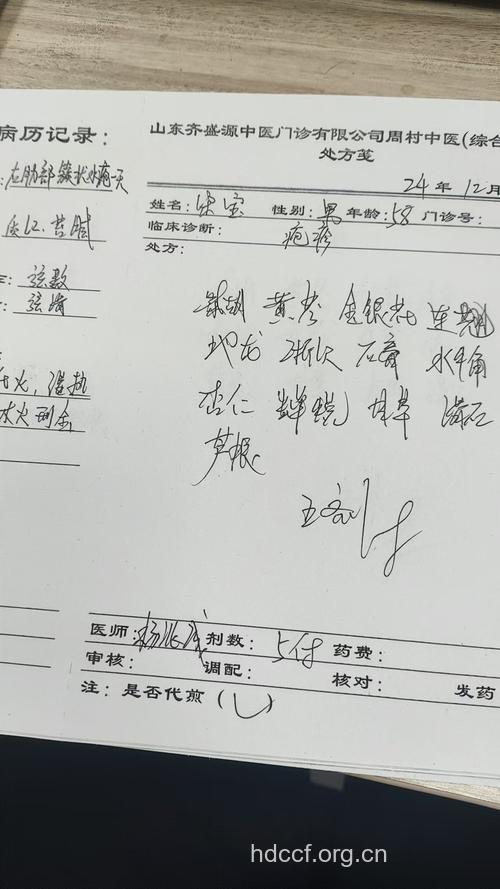 病历记录：
左肋部簇状水疱一天
质红 苔腻
弦数
弦滑
水火刑金
山东齐盛源中医门诊有限公司周村中医(综合
处方笺
24 年 12 月
姓名： 宝 性别：男 年龄：58 门诊号：
临床诊断： 疱疹
处方：
柴胡 黄芩 金银花 连翘
地龙 浙贝 石膏 水牛角
杏仁 蝉蜕 甘草 滑石
芦根
医师： 剂数：5付 药费：
审核： 调配： 核对： 发药
注：是否代煎（ ）
hdccf.org.cn